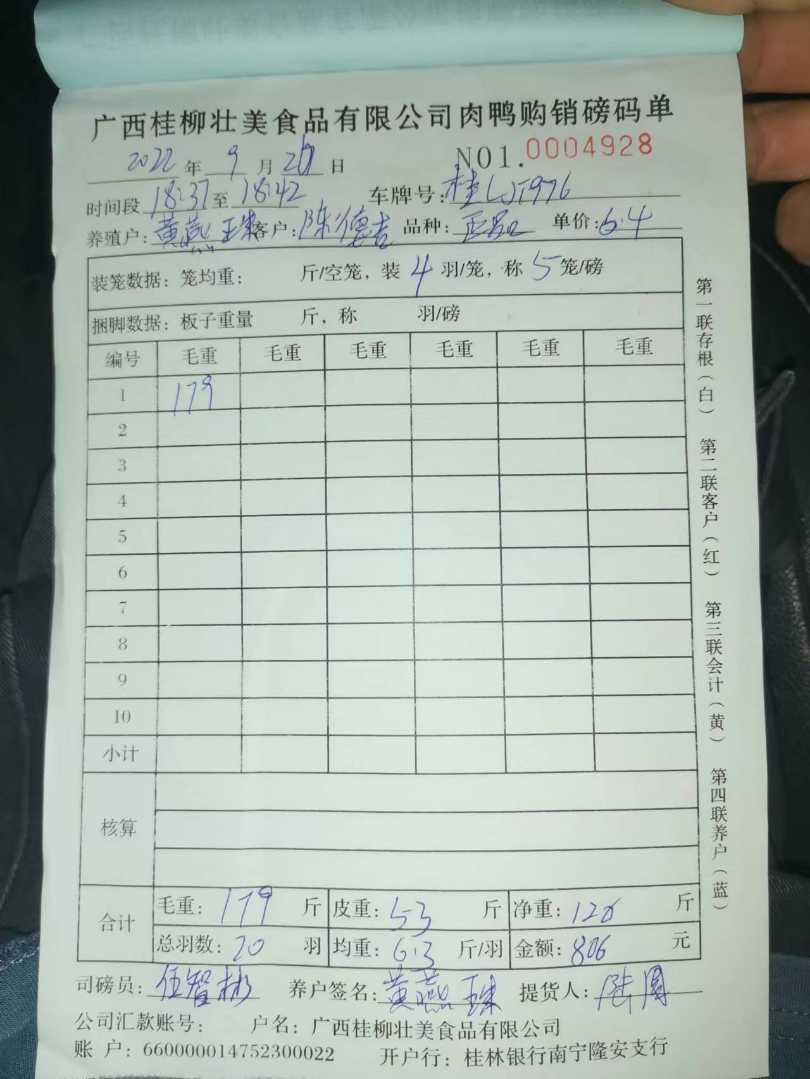 广西桂柳壮美食品有限公司肉鸭购销磅码单
2022年9月26日 NO1.0004928
时间段18:37至18:42 车牌号:桂LJT976
养殖户:黄燕珠 客户:陈德吉 品种:正品 单价:6.4
装笼数据:笼均重: 斤/空笼,装4羽/笼,称5笼/磅
捆脚数据:板子重量 斤,称 羽/磅
编号 毛重 毛重 毛重 毛重 毛重 毛重
1 179
2
3
4
5
6
7
8
9
10
小计
核算
合计 毛重:179斤 皮重:53斤 净重:126斤
总羽数:20羽 均重:6.3斤/羽 金额:806元
司磅员:伍智彬 养户签名:黄燕珠 提货人:陆
公司汇款账号: 户名:广西桂柳壮美食品有限公司
账 户:660000014752300022 开户行:桂林银行南宁隆安支行
第一联存根(白) 第二联客户(红) 第三联会计(黄) 第四联养户(蓝)